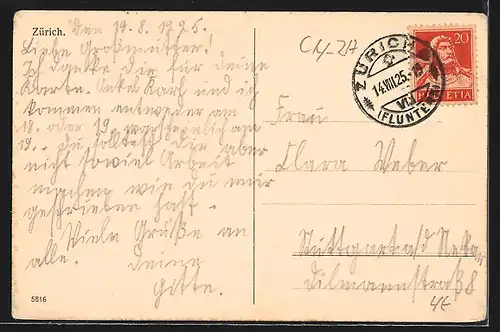 Zürich.
den 14. 8. 1925.
Liebe Großmutter!
Ich danke dir für deine
Karte. Onkel Karl und ich
kommen entweder am
18. oder 19. wahrscheinlich am
19. Du solltest dir aber
nicht soviel Arbeit
machen wie du mir
geschrieben hast.
Viele Grüße an
alle. Deine
Gitte.
5816
ZÜRICH
14.VIII.25.
VII
(FLUNTERN)
20
HELVETIA
Frau
Clara Weber
Stuttgart a/d Neckar
Dilmannstraß 8
4€